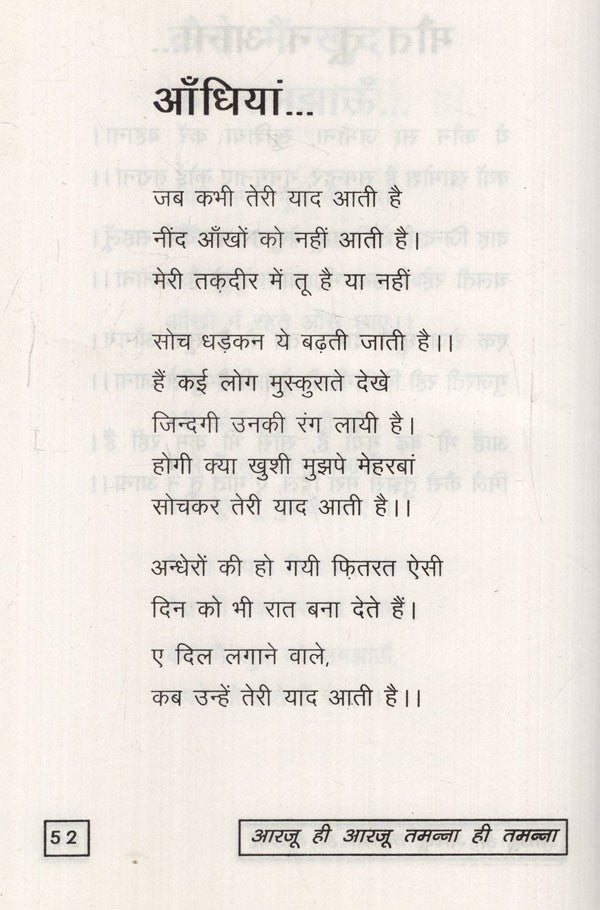 आँधियां...
जब कभी तेरी याद आती है
नींद आँखों को नहीं आती है।
मेरी तक़दीर में तू है या नहीं
सोच धड़कन ये बढ़ती जाती है।।
हैं कई लोग मुस्कुराते देखे
जिन्दगी उनकी रंग लायी है।
होगी क्या खुशी मुझपे मेहरबां
सोचकर तेरी याद आती है।।
अन्धेरों की हो गयी फ़ितरत ऐसी
दिन को भी रात बना देते हैं।
ए दिल लगाने वाले,
कब उन्हें तेरी याद आती है।।
52
आरजू ही आरजू तमन्ना ही तमन्ना